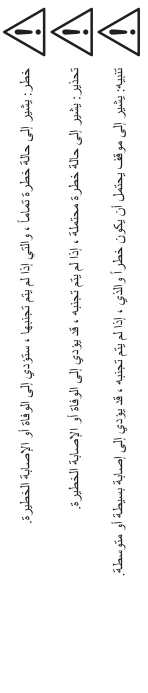 خطر: يشير إلى حالة خطرة تماماً ، والتي إذا لم يتم تجنبها ، ستودي إلى الوفاة أو الإصابة الخطيرة.
تحذير: يشير إلى حالة خطرة محتملة ، إذا لم يتم تجنبه ، قد يودي إلى الوفاة أو الإصابة الخطيرة.
تنبيه: يشير إلى موقف يحتمل أن يكون خطراً والذي ، إذا لم يتم تجنبه ، قد يودي إلى إصابة بسيطة أو متوسطة.